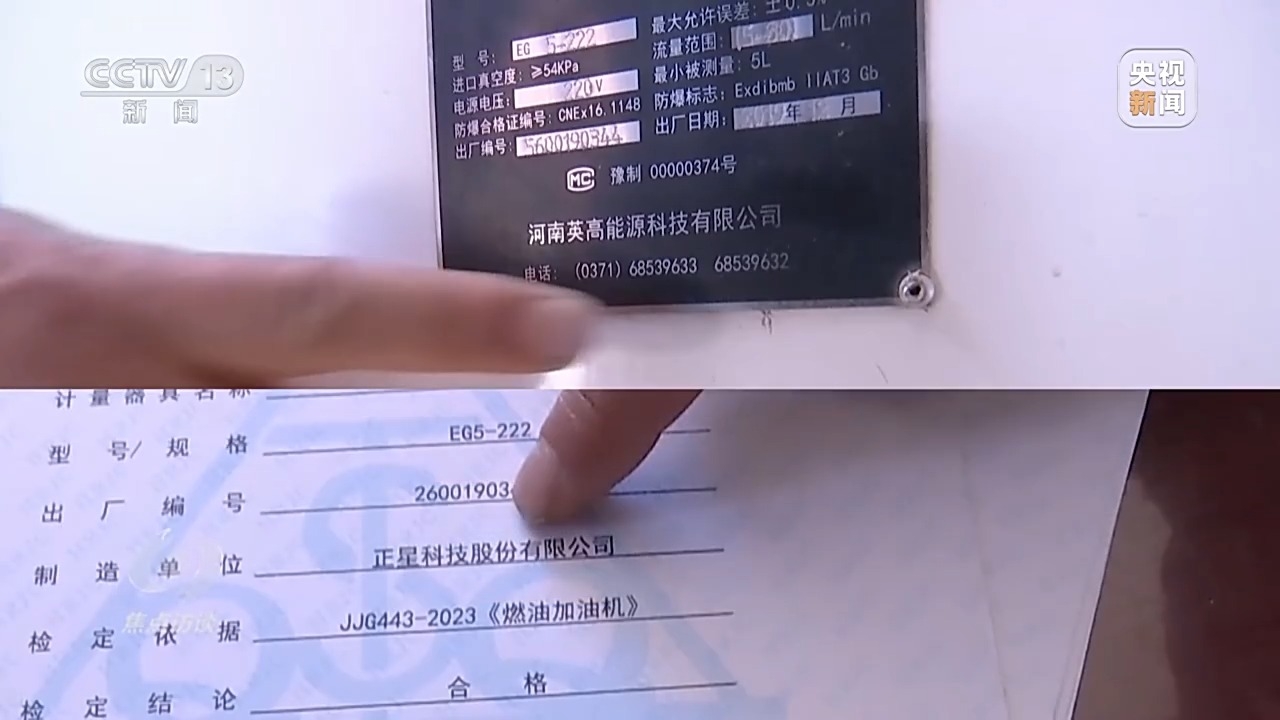 CCTV 13
新闻
央视
新闻
型 号: EG 5-222
最大允许误差: ±0.3%
进口真空度: ≥54KPa
流量范围: (5-80) L/min
电源电压: 220V
最小被测量: 5L
防爆合格证编号: CNEx16.1148
防爆标志: Exdibmb IIAT3 Gb
出厂编号: 5600190344
出厂日期: 年 月
MC 豫制 00000374号
河南英高能源科技有限公司
电话: (0371) 68539633 68539632
计量器具名称
型号/规格 EG5-222
出厂编号 26001903
制造单位 正星科技股份有限公司
检定依据 JJG443-2023《燃油加油机》
检定结论 合格
焦点访谈